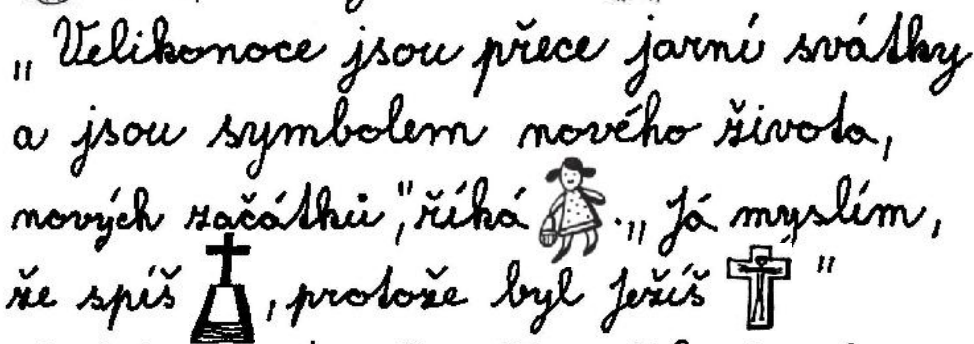 „Velikonoce jsou přece jarní svátky
a jsou symbolem nového života,
nových začátků", říká . „Já myslím,
že spíš , protože byl Ježíš "